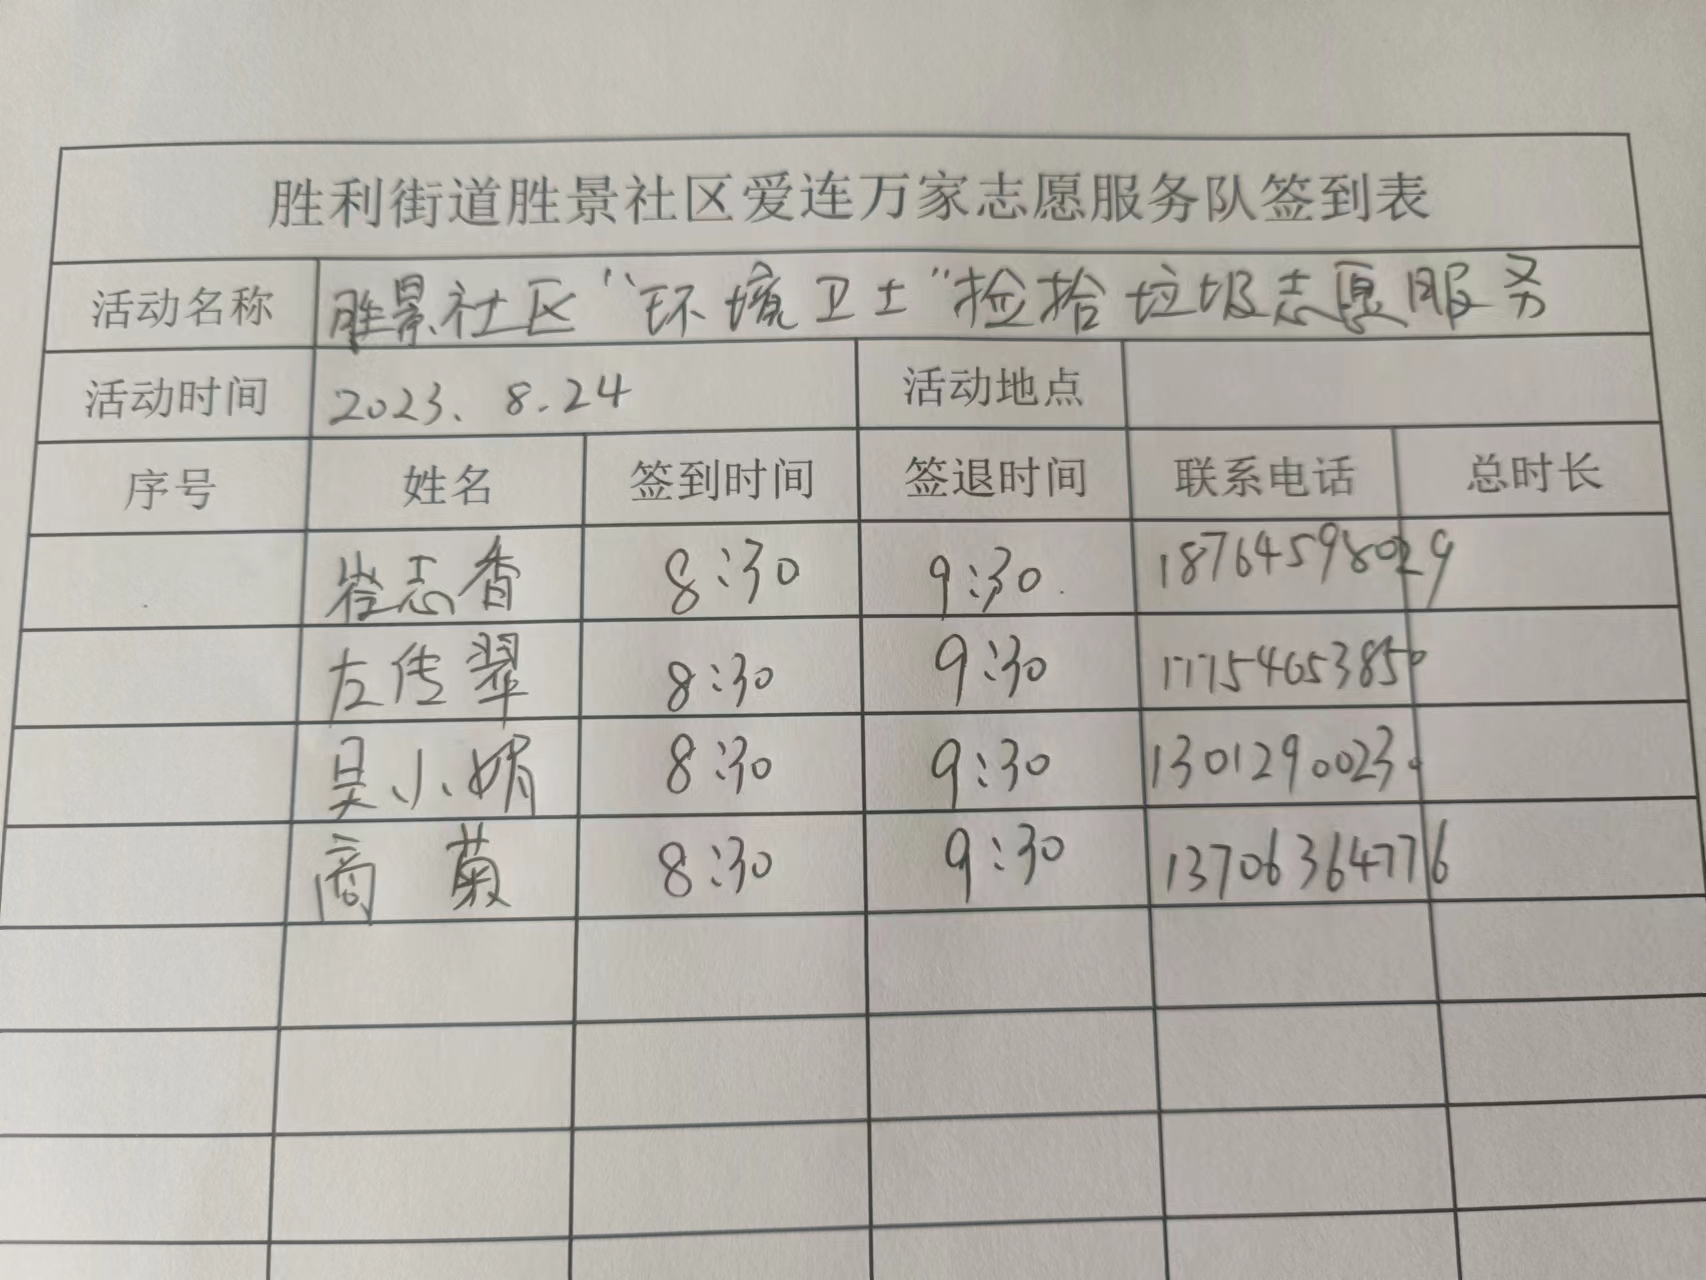 胜利街道胜景社区爱连万家志愿服务队签到表
活动名称 胜景社区“环境卫士”捡拾垃圾志愿服务
活动时间 2023.8.24 活动地点
序号 姓名 签到时间 签退时间 联系电话 总时长
崔志香 8:30 9:30 18764598029
左传翠 8:30 9:30 17754653850
吴小娟 8:30 9:30 13012900230
商菊 8:30 9:30 13706364776